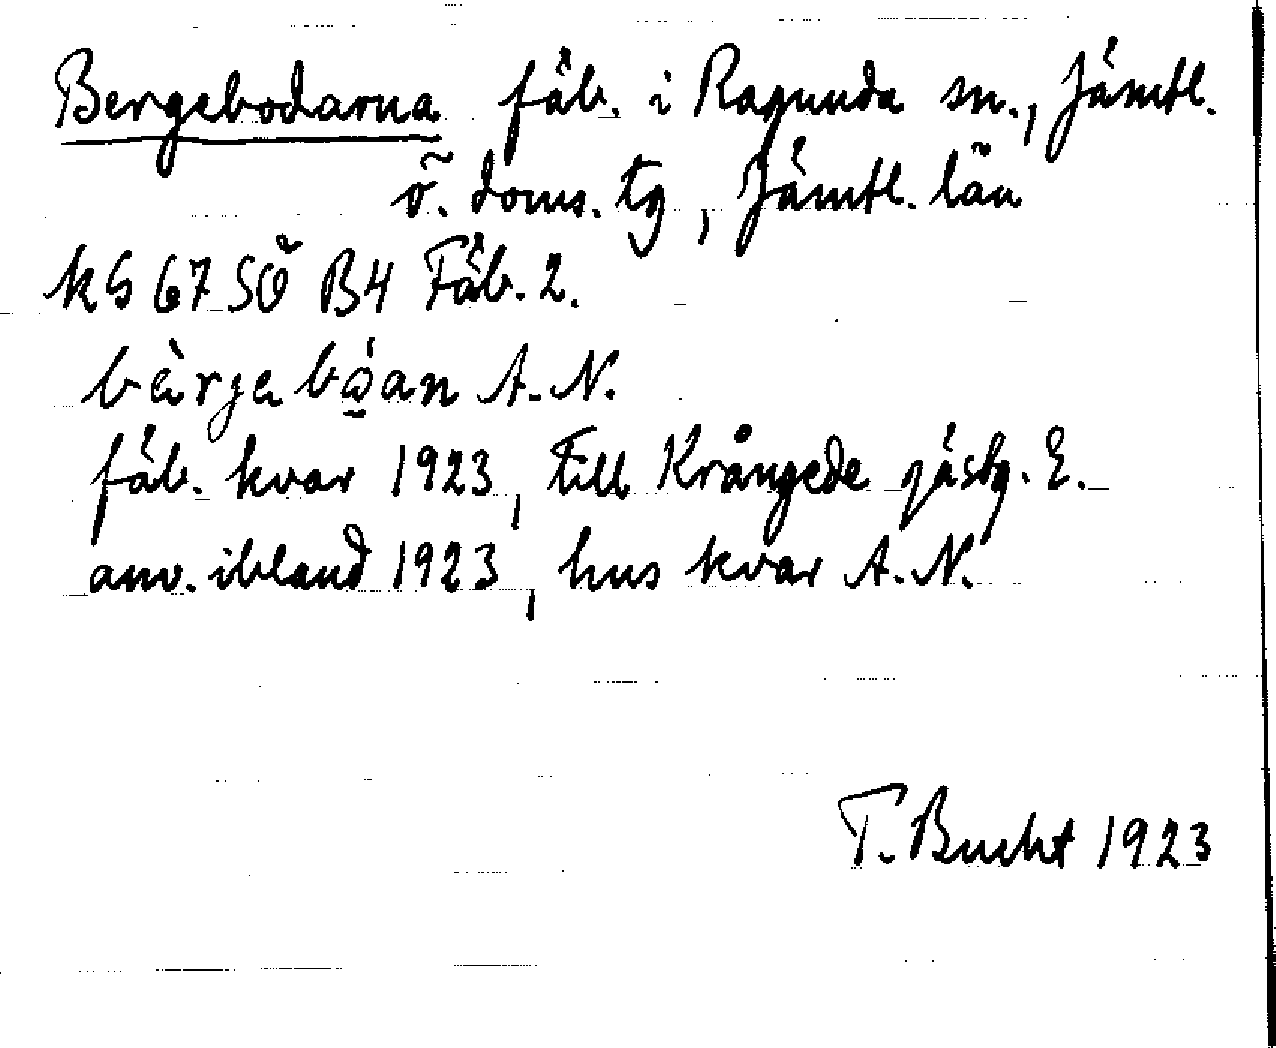 Bergebodarna fäb. i Ragunda sn., Jämtl.
ö. doms. tg, Jämtl. län
kS 67 SÖ B4 Fäb. 2.
bèrjebó̱an A.N.
fäb. kvar 1923, till Krångede gästg. E.
anv. ibland 1923, hus kvar A.N.
T. Bucht 1923